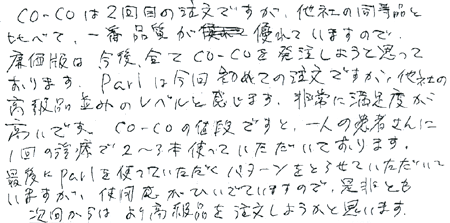 CO-COは2回目の注文ですが、他社の同等品と
比べて、一番品質が優れていますので、
廉価版は今後全てCO-COを発注しようと思って
おります。Parlは今回初めての注文ですが、他社の
高級品並みのレベルと感じます。非常に満足度が
高いです。CO-COの値段ですと、一人の患者さんに
1回の診療で2～3本使っていただいております。
最後にParlを使っていただくパターンをとらせていただいて
いますが、使用感がひいでていますので、是非とも
次回からはより高級品を注文しようかと思います。